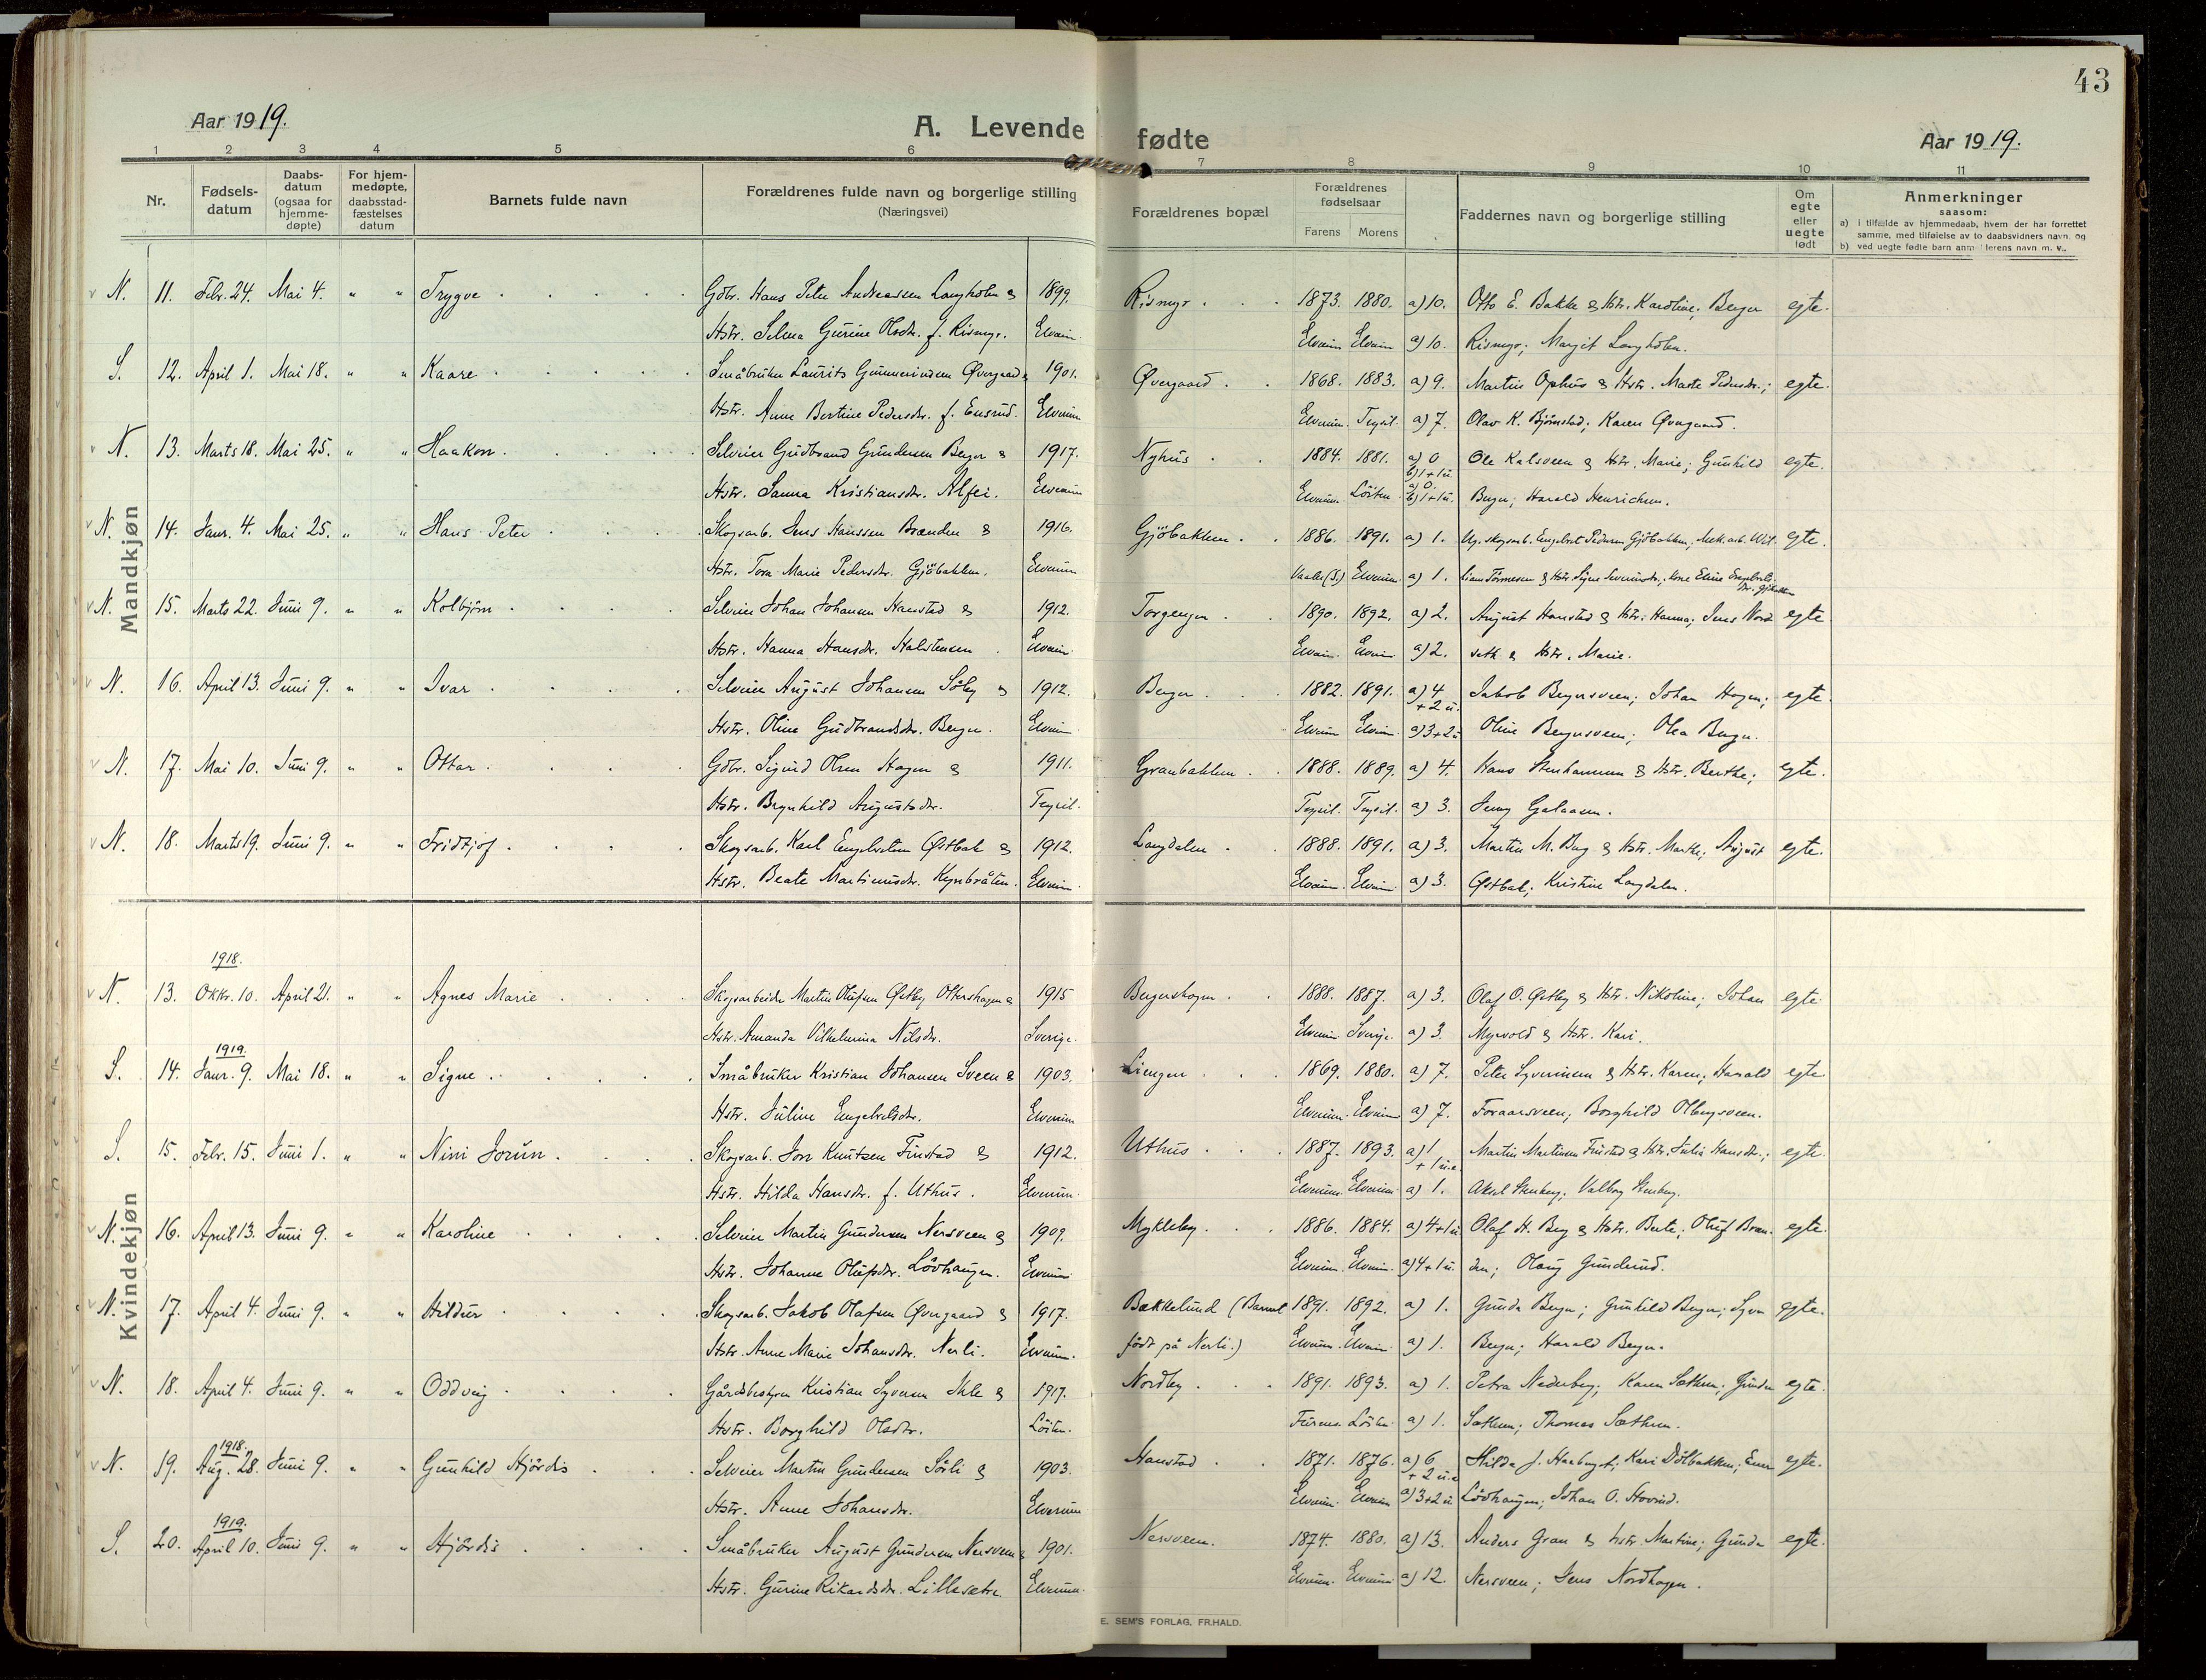 43
Aar 1919.
A. Levende fødte
Aar 1919.
1 2 3 4 5 6 7 8 9 10 11
Nr.
Fødsels-
datum
Daabs-
datum
(ogsaa for
hjemme-
døpte)
For hjem-
medøpte,
daabsstad-
fæstelses
datum
Barnets fulde navn
Forældrenes fulde navn og borgerlige stilling
(Næringsvei)
Forældrenes bopæl
Forældrenes
fødselsaar
Farens Morens
Faddernes navn og borgerlige stilling
Om
egte
eller
uegte
født
Anmerkninger
saasom:
a) i tilfælde av hjemmedaab, hvem der har forrettet
samme, med tilføielse av to daabsvidners navn, og
b) ved uegte fødte barn anm lerens navn m. v..
Mandkjøn
N. 11. Febr. 24. Mai 4. " " Trygve Gdbr. Hans Peter Andreassen Langholen & 1899. Rismyr 1873. 1880. a) 10. Otto E. Bakke & Hstr. Karoline; Berger egte.
Hstr. Selma Gurine Olsdtr. f. Rismyr. Elverum. Elverum Elverum a) 10. Rismyr; Margit Langholen.
S. 12. April 1. Mai 18. " " Kaare Småbruker Laurits Gunneriussen Øvergaard & 1901. Øvergaard 1868. 1883. a) 9. Martin Ophus & Hstr. Marte Pedersdtr.; egte.
Hstr. Anne Bertine Pedersdtr. f. Ensrud. Elverum Elverum. Trysil. a) 7. Olav K. Bjørnstad; Karen Øvergaard.
N. 13. Marts 18. Mai 25. " " Haakon Selveier Gudbrand Gundersen Berger & 1917. Nyhus 1884. 1881. a) 0 b) 1+1u. Ole Kalsveen & Hstr. Marie; Gunhild egte.
Hstr. Sanna Kristiansdtr. Alfei. Elverum Elverum. Löiten a) 0. b) 1+1u. Berger; Harald Henrichsen.
N. 14. Janr. 4. Mai 25. " " Hans Peter Skogsarb. Jens Hanssen Brænden & 1916. Gjöbakken 1886. 1891. a) 1. Ug. skogsarb. Engebret Pedersen Gjöbakken; Mek. arb. Wil- egte.
Hstr. Tora Marie Pedersdtr. Gjöbakken. Elverum Vaaler (S.) Elverum. a) 1. liam Törmesen & Hstr. Signe Severinsdtr.; Kone Eline Engebrets-
dtr. Gjöbakken
N. 15. Marts 22. Juni 9. " " Kolbjørn Selveier Johan Johansen Hanstad & 1912. Torgengen 1890. 1892. a) 2. August Hanstad & Hstr. Hanna; Jens Nord egte
Hstr. Hanna Hansdtr. Halstensen Elverum. Elverum. Elverum a) 2. seth & Hstr. Marie.
N. 16. April 13. Juni 9. " " Ivar Selveier August Johansen Söby & 1912. Berger 1882. 1891. a) 4 + 2 u. Jakob Bergersveen; Johan Hagen; egte.
Hstr. Oline Gudbrandsdtr. Berger. Elverum Elverum Elverum a) 3+2u Oline Bergersveen; Olea Berger.
N. 17. Mai 10. Juni 9. " " Ottar Gdbr. Sigurd Olsen Hagen & 1911. Granbakken 1888. 1889. a) 4. Hans Stenhammer & Hstr. Berthe; egte.
Hstr. Brynhild Augustsdtr. Trysil. Trysil. Trysil. a) 3. Jenny Galaasen.
N. 18. Marts 19. Juni 9. " " Fridtjof Skogsarb. Karl Engebretsen Østbak & 1912. Langdalen 1888. 1891. a) 3. Martin M. Berg & Hstr. Marthe; August egte.
Hstr. Beate Martinusdtr. Kynbråten. Elverum. Elverum. Elverum a) 3. Østbak; Kristine Langdalen.
Kvindekjøn
1918.
N. 13. Oktr. 10. April 21. " " Agnes Marie Skogsarbeider Martin Olufsen Østby Ottershagen & 1915 Bergershagen 1888. 1887. a) 3. Olaf O. Østby & Hstr. Nikoline; Johan egte.
Hstr. Amanda Vilhelmina Nilsdtr. Sverige. Elverum Sverige. a) 3. Myrvold & Hstr. Kari.
1919.
S. 14. Janr. 9. Mai 18. " " Signe Småbruker Kristian Johansen Sveen & 1903. Liengen 1869. 1880. a) 7. Peter Syverinsen & Hstr. Karen; Harald egte
Hstr. Juline Engebretsdtr. Elverum Elverum. Elverum a) 7. Foraarsveen; Borghild Olbergsveen.
S. 15. Febr. 15. Juni 1. " " Nini Jorun Skogsarb. Jon Knutsen Finstad & 1912. Uthus 1887. 1893. a) 1 + 1 u.e. Martin Martinsen Finstad & Hstr. Julia Hansdtr.; egte.
Hstr. Hilda Hansdtr. f. Uthus. Elverum. Elverum. Elverum a) 1. Aksel Stenberg; Valborg Stenberg.
N. 16. April 13. Juni 9. " " Karoline Selveier Martin Gundersen Nersveen & 1909. Mykleby 1886. 1884. a) 4+1u Olaf H. Berg & Hstr. Berte; Oluf Bræn- egte.
Hstr. Johanne Olufsdtr. Lövhaugen. Elverum Elverum. Elverum. a) 4+1u. den; Olaug Grundsund.
N. 17. April 4. Juni 9. " " Hildur Skogsarb. Jakob Olafsen Øvergaard & 1917. Bækkelund (Barnet 1891. 1892. a) 1. Gunda Berger; Gunhild Berger; Syver egte.
Hstr. Anne Marie Johansdtr. Nerli. Elverum. født på Nerli.) Elverum. Elverum. a) 1. Berger; Harald Berger.
N. 18. April 4. Juni 9. " " Oddveig Gårdsbestyrer Kristian Syversen Ihle & 1917. Nordby 1891. 1893. a) 1. Petra Nederberg; Karen Sæthren; Gunda egte.
Hstr. Borghild Olsdtr. Löiten. Furnes. Löiten. a) 1. Sæthren; Thomas Sæthren.
1918.
N. 19. Aug. 28. Juni 9. " " Gunhild Hjördis Selveier Martin Gundersen Sörli & 1903. Hanstad 1871. 1876. a) 6 + 2 u.e Hilda J. Haaberget; Kari Dölbakken; Einar egte.
Hstr. Anne Johansdtr. Elverum Elverum. Elverum a) 3+2u Lövhaugen; Johan O. Hovind.
1919.
S. 20. April 10. Juni 9. " " Hjördis Småbruker August Gundersen Nersveen & 1901. Nersveen. 1874. 1880. a) 13. Anders Gran & hstr. Martine; Gunda egte.
Hstr. Gurine Rikardsdtr. Lillesætre. Elverum. Elverum. Elverum a) 12. Nersveen; Jens Nordhagen.
E. SEM'S FORLAG, FR.HALD.